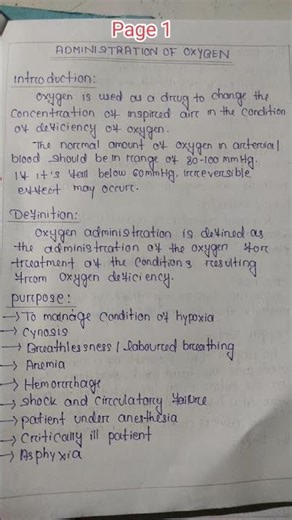 Page 1
ADMINISTRATION OF OXYGEN
Introduction:
Oxygen is used as a drug to change the
concentration of inspired air in the condition
of deficiency of oxygen.
The normal amount of oxygen in arterial
blood should be in range of 80-100 mmHg.
If it's fall below 60mmHg. irreversible
effect may occur.
Definition:
Oxygen administration is defined as
the administration of the oxygen for
treatment of the conditions resulting
from oxygen deficiency.
purpose:
→ To manage condition of hypoxia
→ Cynosis
→ Breathlessness / laboured breathing
→ Anemia
→ Hemorrhage
→ shock and circulatory failure
→ patient under anesthesia
→ Critically ill patient
→ Asphyxia